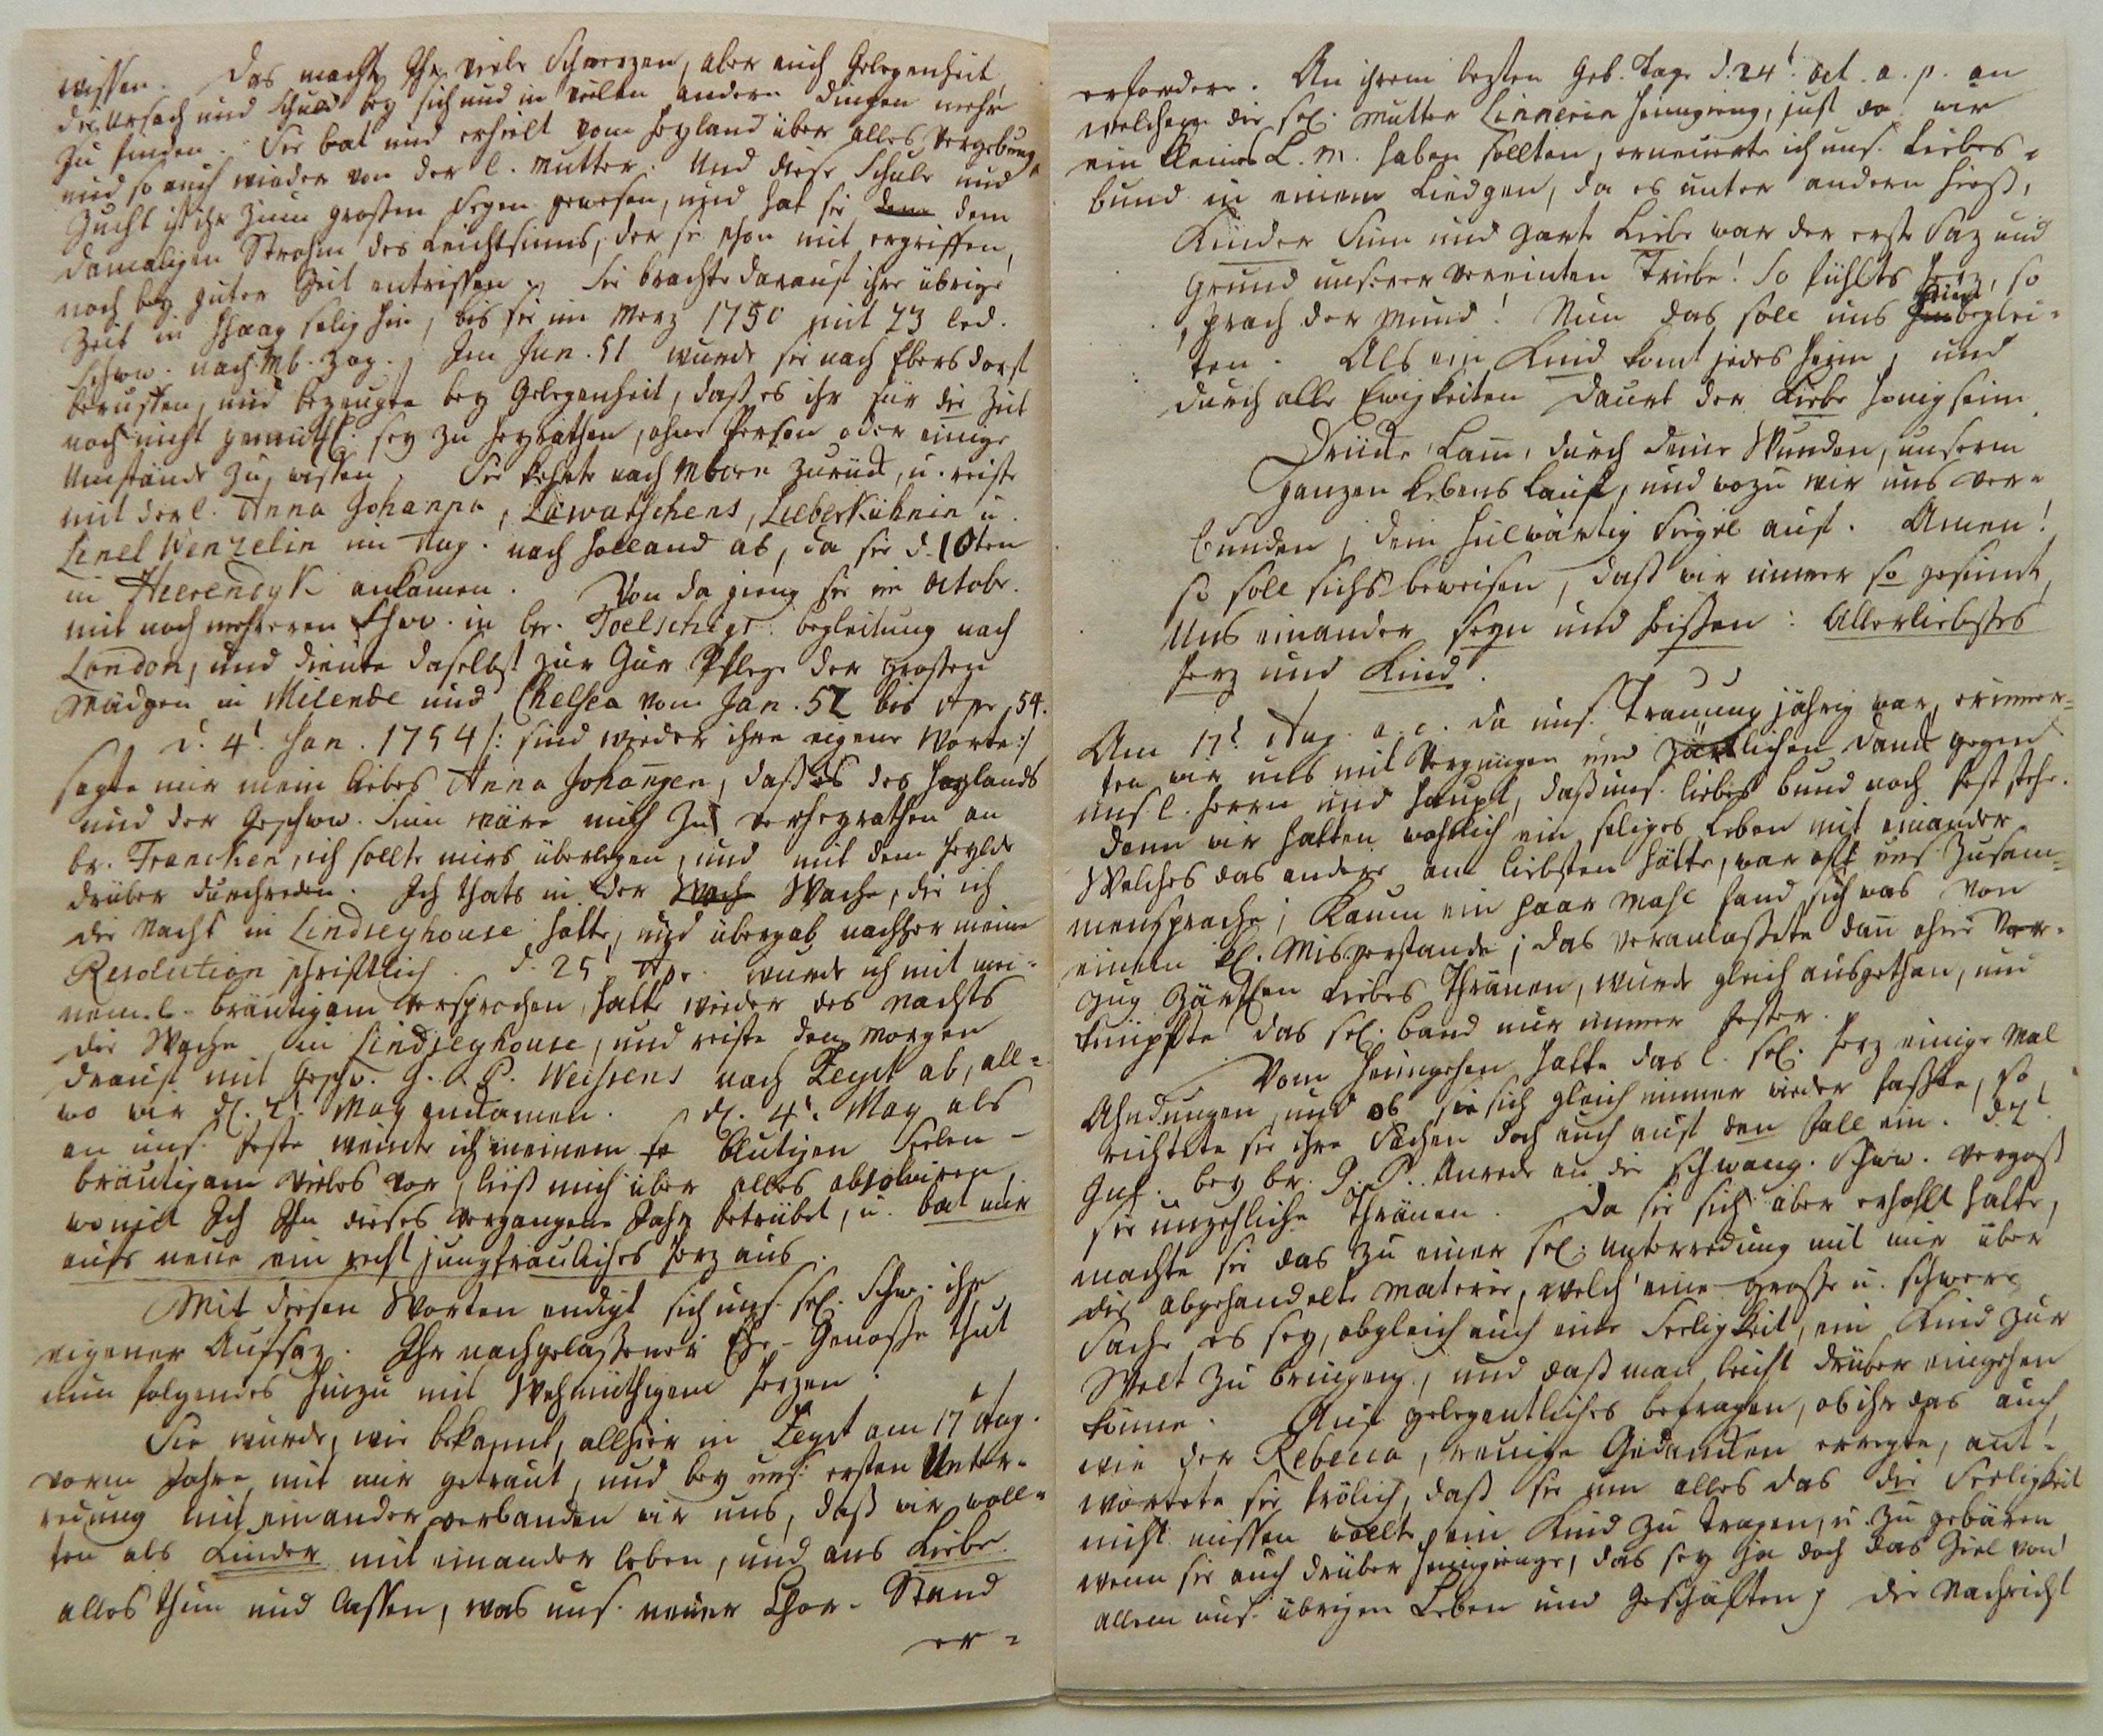 wissen. Das machte Ihr viele Schmerzen, aber auch Gelegenheit,
die Ursach und Schuld bey sich und in vielen andern Dingen mehr
zu finden. Sie bat und erhielt vom Heyland über alles Vergebung,
und so auch wieder von der l. Mutter. Und diese Schule und
Zucht ist ihr zum großen Segen gewesen, und hat sie dem dem
damaligen Strohm des Leichtsinns, der sie schon mit ergriffen,
noch bey guter Zeit entrissen. Sie brachte darauf ihre übrige
Zeit in Hhaag selig hin, bis sie im Merz 1750 mit 73 led.
Schww. nach Mb. zog. Im Jun. 51 wurde sie nach Ebersdorf
beruffen, und bezeugte bey Gelegenheit, daß es ihr für die Zeit
noch nicht gemüthl. sey zu heyrathen, ohne Person oder einige
Umstände zu wissen. Sie kehrte nach Mbaen zurück, u. reiste
mit der l. Anna Johanna, Lawatschens, Lieberkühnin u.
Lenel Wenzelin im Aug. nach Holland ab, da sie d. 10ten
in Heerendyk ankamen. Von da gieng sie im Octobr.
mit noch mehreren Schww. in br. Toelschigs begleitung nach
London, und diente daselbst zur Pflege der grossen
Mädgen in Milende und Chelsea vom Jan. 52 bis Apr. 54.
d. 4t. Jan. 1754 /: sind wieder ihre eigene Worte :/
sagte mir mein liebes Anna Johangen, daß es des Heylands
und der Geschww. Sinn wäre mich zu verheyrathen an
br. Francken, ich sollte mirs überlegen, und mit dem Heylde
drüber durchreden. Ich thats in der Wach Wache, die ich
die Nacht in Lindseyhouse hatte, und übergab nachher meine
Resolution schriftlich. d. 25t Apr. wurde ich mit mei-
nem l. bräutigam versprochen, hatte wieder des Nachts
die Wache in Lindseyhouse, und reiste den Morgen
drauf mit Geschw. G. Weissens nach Zeyst ab, all-
wo wir d. 2t. May ankamen. d. 4t. May als
an uns. Feste weinte ich meinem blutigen Seelen-
bräutigam vieles vor, ließ mich über alles absolviren
womit Ich Ihn dieses vergangene Jahr betrübet, u. bat mir
aufs neue ein recht jungfräuliches Herz aus.
Mit diesen Worten endigt sich uns. sel. Schw. ihr
eigener Aufsaz. Ihr nachgelaßener Ehe-Genosse thut
nun folgendes hinzu mit Wehmüthigem Herzen:
Sie wurde, wie bekannt, allhier in Zeyst am 17t Aug.
vorm Jahre mit mir getraut, und bey uns. ersten Unter-
redung mit einander verbanden wir uns, daß wir woll-
ten als Kinder mit einander leben, und aus Liebe
alles thun und lassen, was uns. neuer Chor-Stand
er-
erfordere. An ihrem lezten Geb. Tage d. 24t. Oct. a. p. an
welchem die sel. Mutter Linnerin heimgieng, just da wir
ein kleines L. M. haben sollten, erneuerte ich uns. Liebes-
bund in einem Liedgen, da es unter andern hieß,
Kinder Sinn und zarte Liebe war der erste Saz und
Grund unserer vereinten Triebe! So fühlts Herz, so
sprach der Mund! Nun das soll uns beglei-
ten. Als ein Kind komt jedes heim, und
durch alle Ewigkeiten Daurt der Liebe Honigseim.
Drücke Lam, durch deine Wunden, unserm
ganzen Lebens Lauf, und wozu wir uns ver-
bunden, dein Hulwärtig Siegel auf. Amen!
so soll sichs beweisen, daß wir immer so gesinnt,
Uns einander seyn und heissen: Allerliebstes
Herz und Kind.
Am 17t Aug. a. c. da uns. Trauung jährig war, erinner-
ten wir uns mit Vergnügen und zärtlichen Dank gegen
uns. l. Herrn und Haupt, daß uns. liebes bund noch fest stehe.
Denn wir hatten wahrlich ein seliges Leben mit einander.
Welches das andere am liebsten hätte, war oft uns. Zusam-
mensprache; Kaum ein paar Mahl fand sich was von
einem kl. Misverstande; das veranlaßte dan ohne Ver-
zug Liebes Thränen, wurde gleich ausgethan, und
knüpfte das sel. band nur immer fester.
Vom Heimgehen hatte das l. sel. Herz einige Mal
Ahndungen, und ob sie sich gleich immer wieder faßte, so
richtete sie ihre Sachen doch auch auf den Fall ein. d. 2t.
bey br. J. P. Anrede an die schwang. Schww. vergoß
sie unzehliche Thränen. Da sie sich aber erhohlt hatte,
machte sie das zu einer sel. Unterredung mit mir über
die abgehandelte Materie, welch eine grosse u. schwere
Sache es sey, obgleich auch eine Seeligkeit, ein Kind zur
Welt zu bringen, und daß man leicht drüber eingehen
könne. Auf gelegentliches befragen, ob ihr das auch
wie der Rebecca, reuige Gedancken erregte, ant-
wortete sie frölich, daß sie um alles das die Seeligkeit
nicht missen wollte, ein Kind zu tragen, u. zu gebären
wenn sie auch drüber heimgienge, das sey ja doch das Ziel von
allem uns. übrigen Leben und Geschäften; Die Nachricht